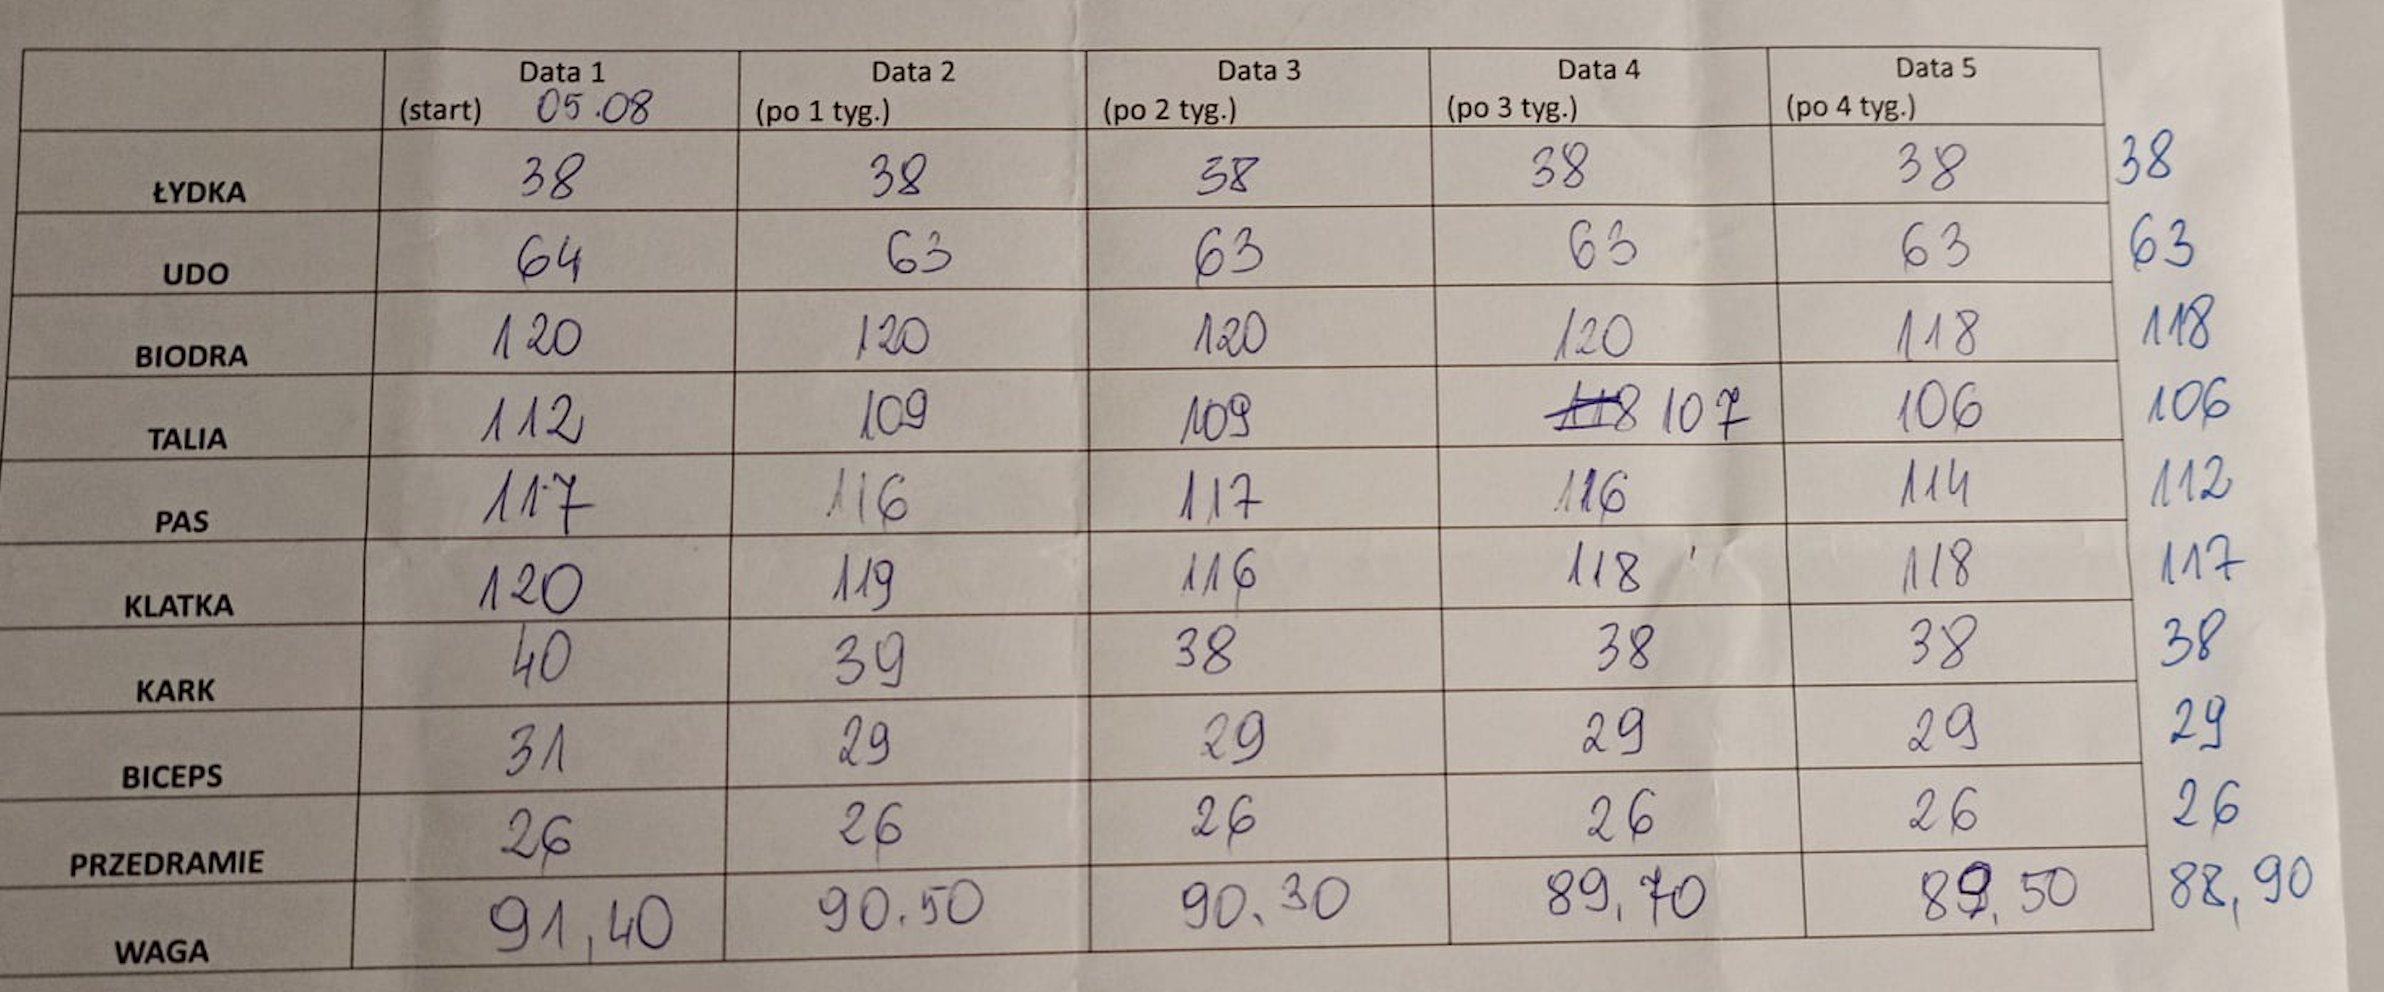 Data 1 Data 2 Data 3 Data 4 Data 5
(start) 05.08 (po 1 tyg.) (po 2 tyg.) (po 3 tyg.) (po 4 tyg.)
ŁYDKA 38 38 38 38 38 38
UDO 64 63 63 63 63 63
BIODRA 120 120 120 120 118 118
TALIA 112 109 109 118 107 106 106
PAS 117 116 117 116 114 112
KLATKA 120 119 116 118 118 117
KARK 40 39 38 38 38 38
BICEPS 31 29 29 29 29 29
PRZEDRAMIE 26 26 26 26 26 26
WAGA 91,40 90.50 90.30 89,70 89,50 88,90